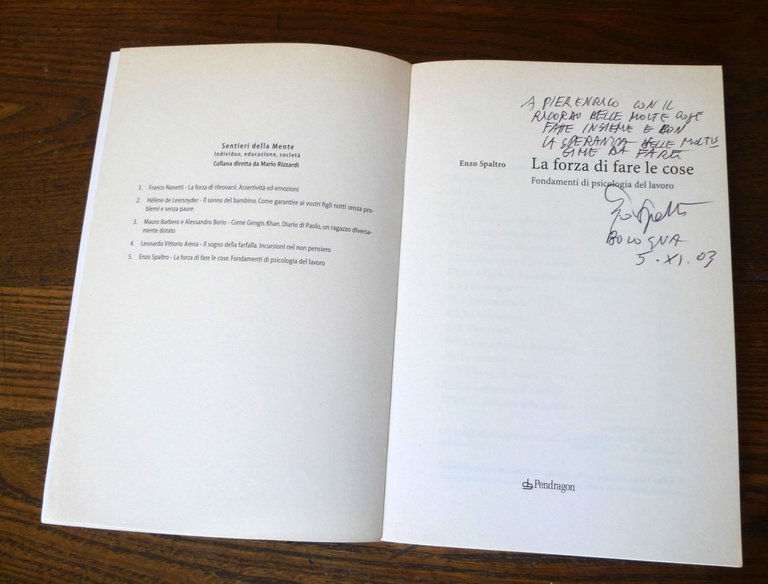 Sentieri della Mente
individuo, educazione, società
Collana diretta da Mario Rizzardi
1. Franco Nanetti - La forza di ritrovarsi. Assertività ed emozioni
2. Hélène de Leersnyder - Il sonno del bambino. Come garantire ai vostri figli notti senza pro-
blemi e senza paure
3. Mauro Barbero e Alessandro Borio - Come Gengis Khan. Diario di Paolo, un ragazzo diversa-
mente dotato
4. Leonardo Vittorio Arena - Il sogno della farfalla. Incursioni nel non pensiero
5. Enzo Spaltro - La forza di fare le cose. Fondamenti di psicologia del lavoro
A PIERENRICO CON IL
RICORDO DELLE MOLTE COSE
FATTE INSIEME E CON
LA SPERANZA DELLE
DA FARE
Enzo Spaltro
La forza di fare le cose
Fondamenti di psicologia del lavoro
BOLOGNA
5.XI.03
Pendragon